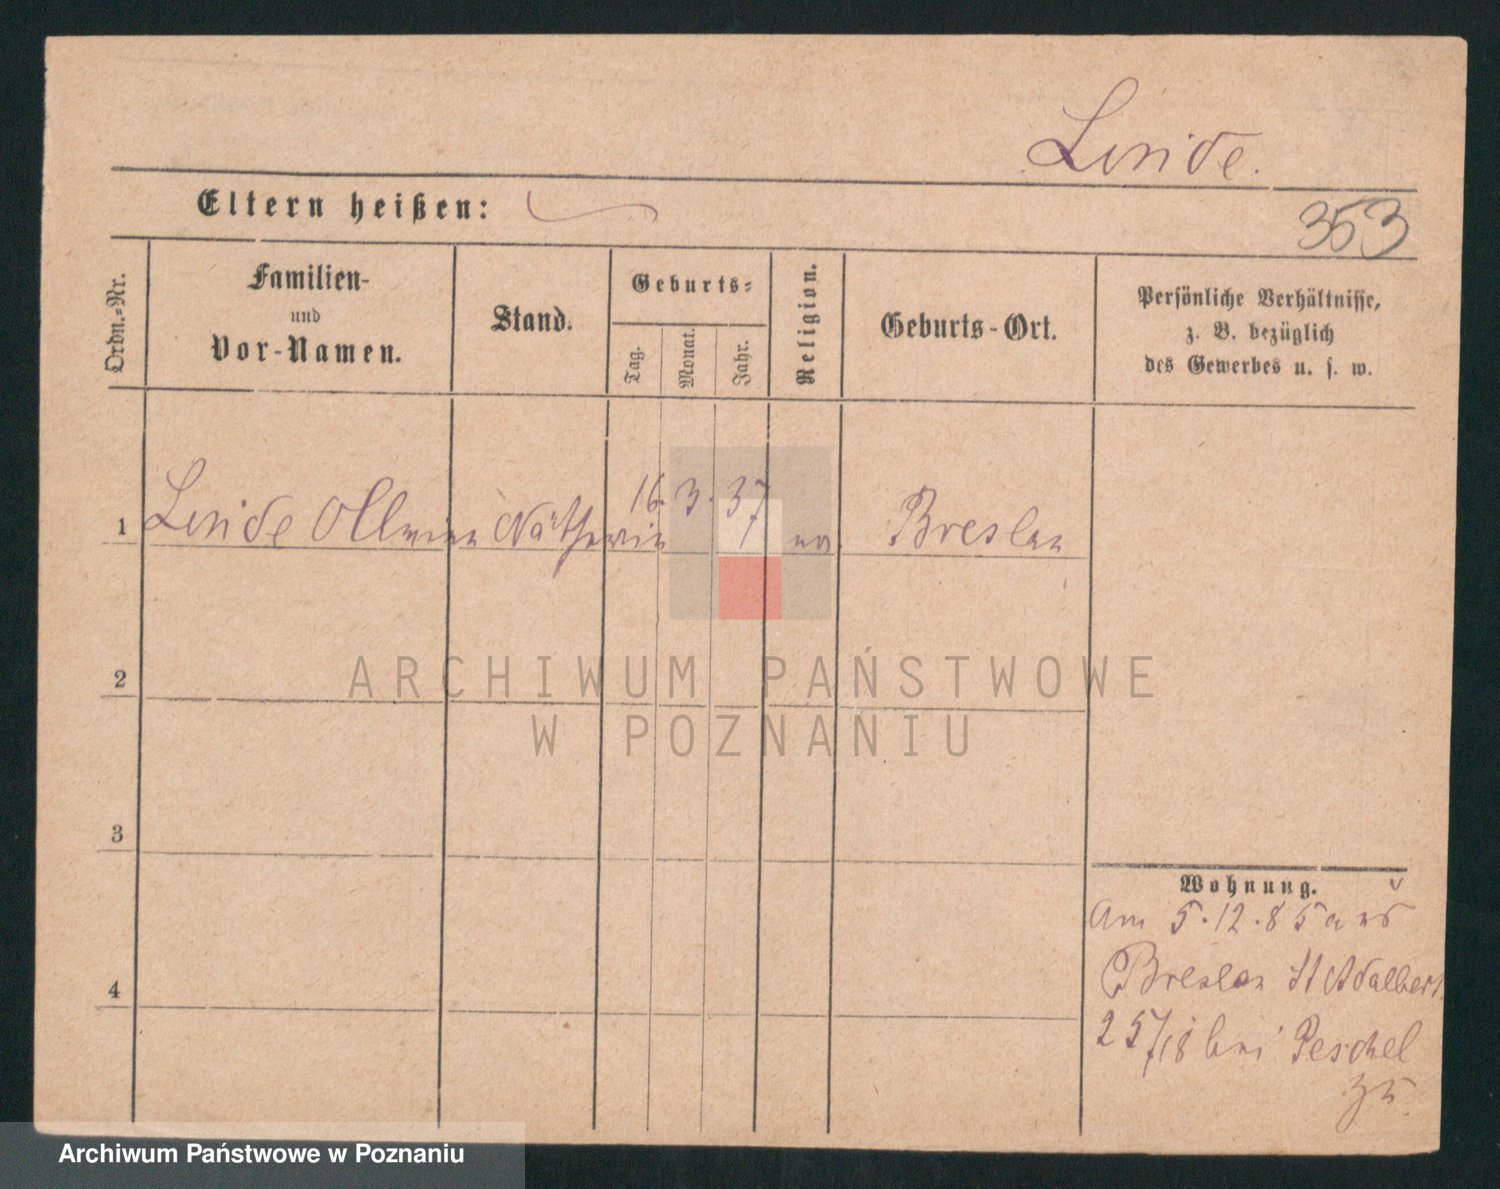 Linde.
Eltern heißen:
353
Ordn.=Nr.
Familien-
und
Vor-Namen.
Stand.
Geburts=
Tag.
Monat.
Jahr.
Religion.
Geburts-Ort.
Persönliche Verhältnisse,
z. B. bezüglich
des Gewerbes u. s. w.
1 Linde Näherin 16. 3. 37 Breslau
2
3
4
Wohnung.
Am 5.12.85 aus
Breslau St Adalbert
25/18 bei Peschel
zu
ARCHIWUM PAŃSTWOWE
W POZNANIU
Archiwum Państwowe w Poznaniu